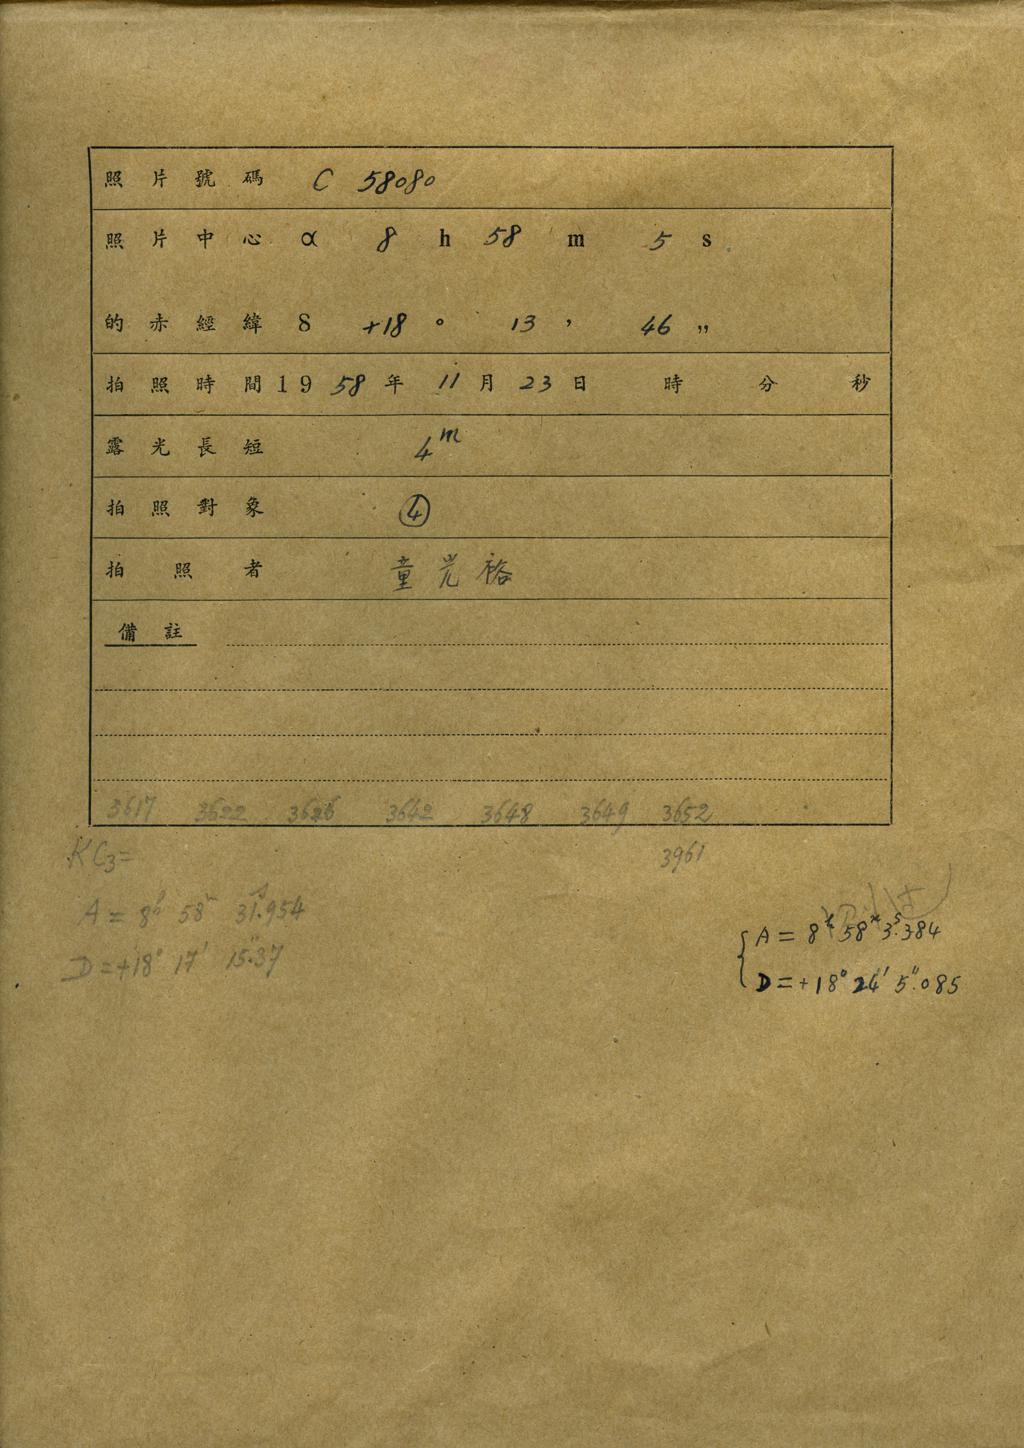 照片號碼 C 58080
照片中心 α 8 h 58 m 5 s
的赤經緯 δ +18 ° 13 ' 46 "
拍照時間 19 58 年 11 月 23 日 時 分 秒
露光長短 4ᵐ
拍照對象 ④
拍照者 童光裕
備註
3617 3622 3626 3642 3648 3649 3652
3961
KC₃=
A = 8ʰ 58ᵐ 31ˢ.954
D = +18° 17' 15".37
A = 8ʰ 58ᵐ 3ˢ.384
D = +18° 24' 5".085